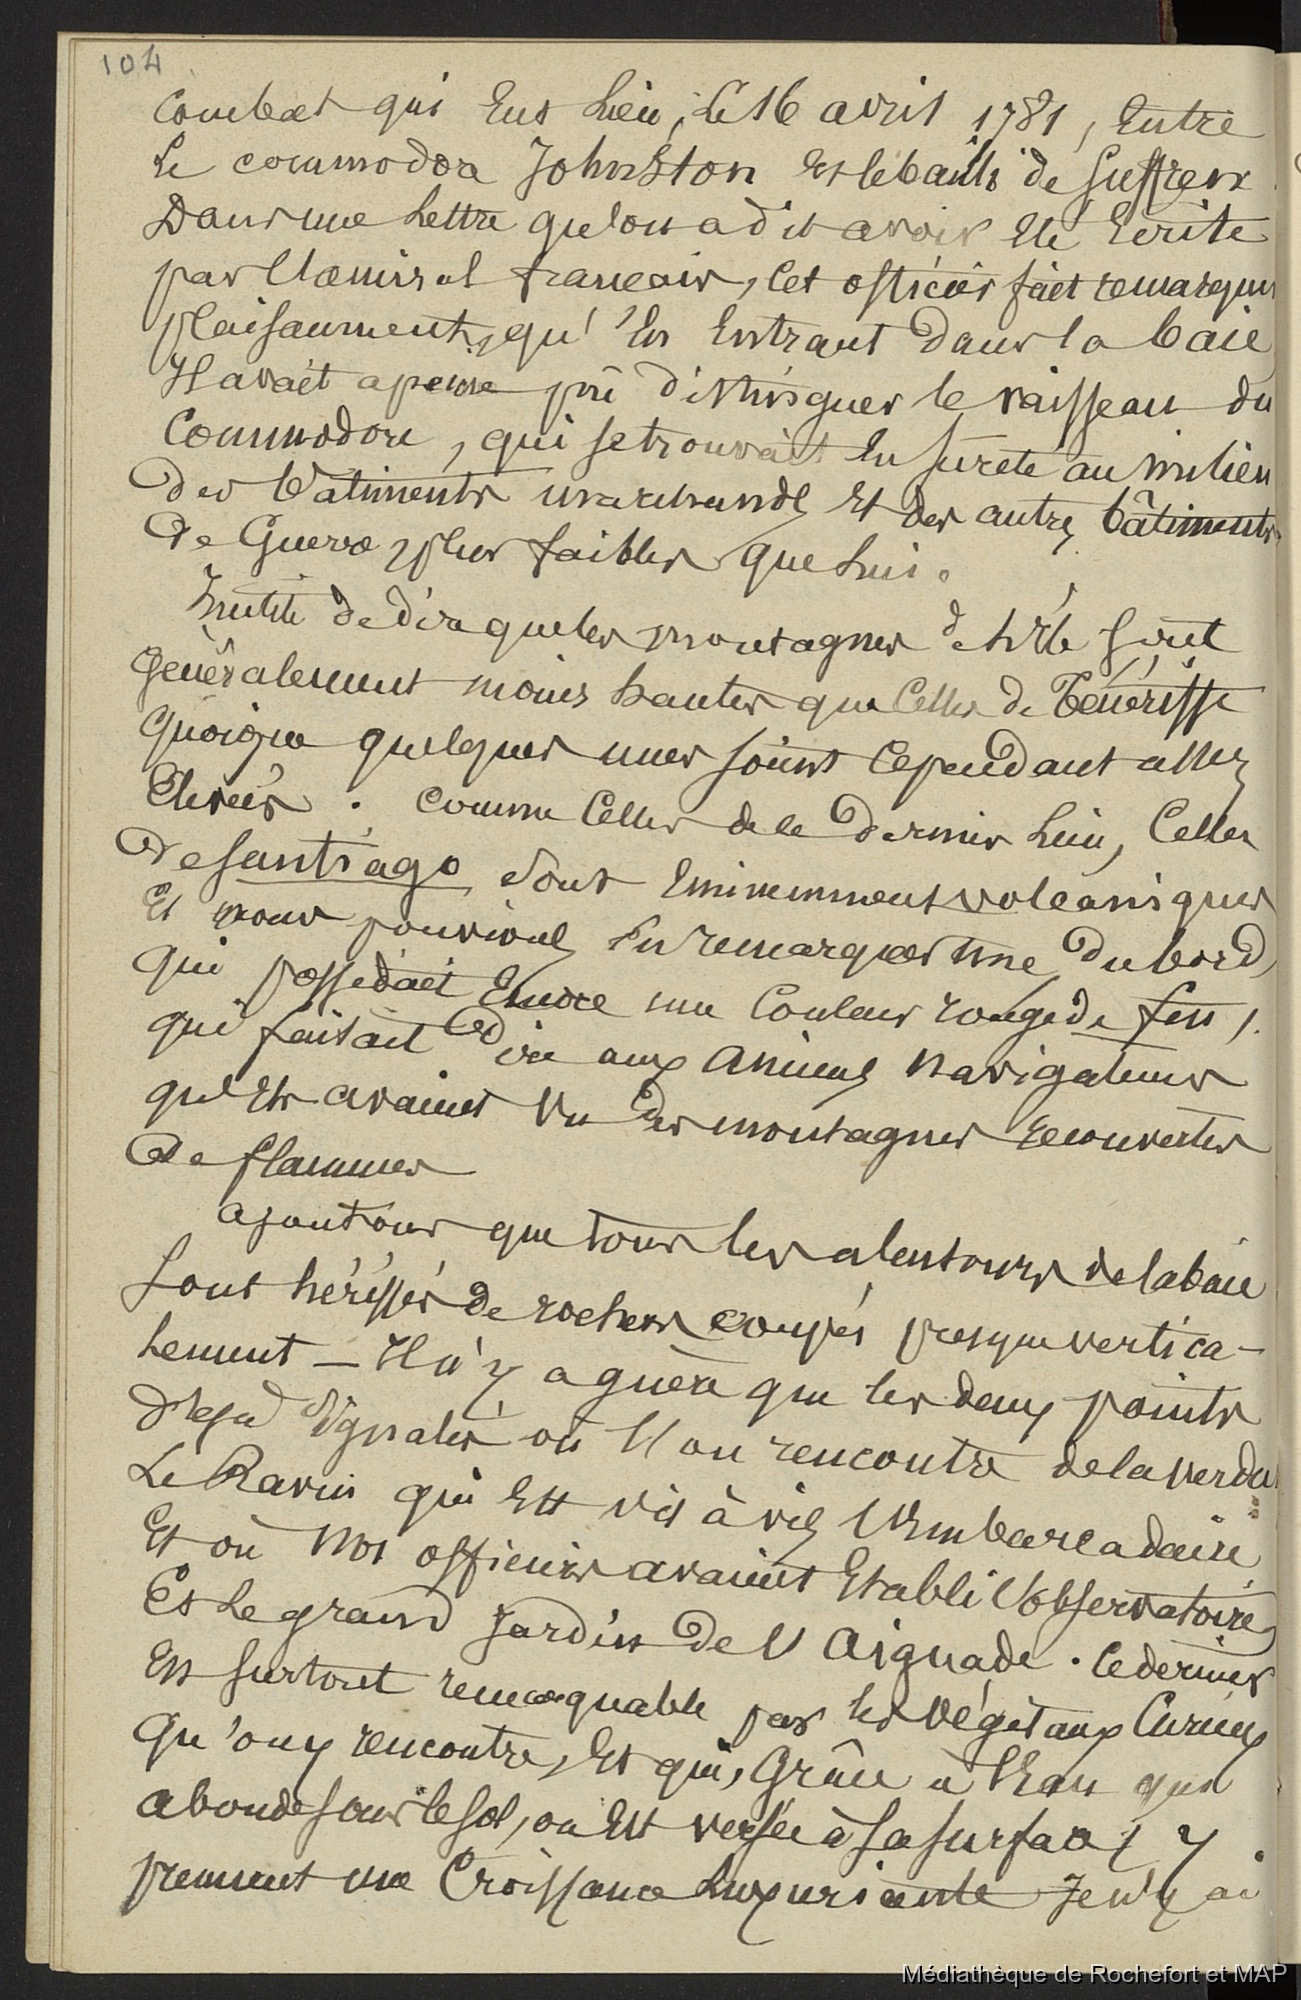 104
combat qui Eut Lieu, Le 16 avril 1781, Entre
Le commodore Johnston Et le bailli de Suffren
Dans une Lettre que l'on a dit avoir Eté Ecrite
par l'amiral francais, cet officier fait remarquer
plaisamment, qu'En Entrant Dans la baie
Il avait a peine pû distinguer le vaisseau du
Commodore, qui se trouvait En sureté au milieu
des bâtiments marchands Et des autres bâtiments
de Guerre plus faibles que Lui.
Inutile de dire que les montagnes de l'Ile sont
généralement moins hautes que Celles de Ténériffe
quoique quelques unes soient Cependant assez
Elevées. comme Celles de ce dernier Lieu, Celles
de Santiago sont Eminemment volcaniques
Et nous pouvions En remarquer une, du bord,
qui possédait Encore une Couleur rouge de feu,
qui faisait dire aux anciens navigateurs
qu'Ils avaient vu des montagnes recouvertes
de flammes
ajoutons que tous les alentours de la baie
sont hérissés de rochers coupés presque vertica-
lement — Il n'y a guère que les deux points
déja signalés où l'on rencontre de la verdu
Le Ravin qui Est vis à vis l'Embarcadaire
Et où nos officiers avaient Etabli l'observatoire,
Et Le grand Jardin de l'Aiguade. Ce dernier
Est surtout remarquable par les végétaux Curieux
qu'on y rencontre, Et qui, Grâce à l'Eau qui
abonde sous le sol, ou Est versée à sa surface, y
prennent une Croissance Luxuriante Je n'y ai
Médiathèque de Rochefort et MAP